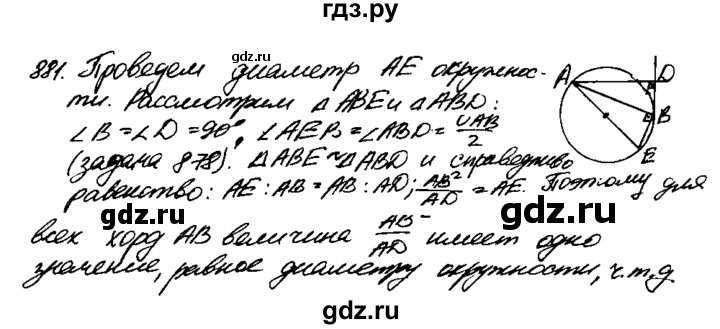 гдз.ру
881. Проведем диаметр AE окружнос-
ти. Рассмотрим △ABE и △ABD:
∠B = ∠D = 90°, ∠AEB = ∠ABD = ∪AB/2
(задача 878). △ABE ~ △ABD и справедливо
равенство: AE : AB = AB : AD; AB²/AD = AE. Поэтому для
всех хорд AB величина AB²/AD имеет одно
значение, равное диаметру окружности, ч.т.д.
A D
B
E
gdz.ru
gdz.ru
gdz.ru
gdz.ru
gdz.ru
gdz.ru
gdz.ru
gdz.ru